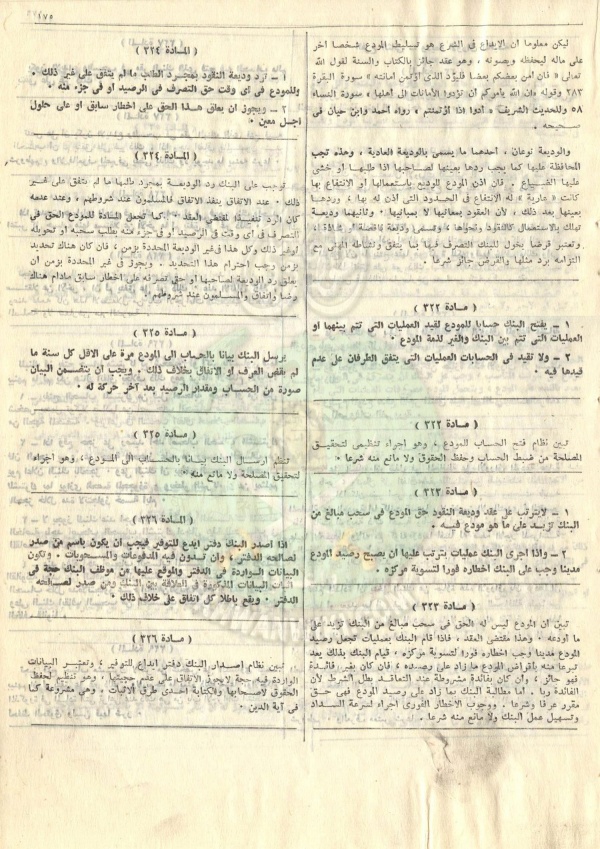 ١٧٥
ليكن معلوما ان الايداع في الشرع هو تسليط المودع شخصا آخر
على ماله ليحفظه ويصونه ، وهو عقد جائز بالكتاب والسنة لقول الله
تعالى « فان أمن بعضكم بعضا فليؤد الذى أؤتمن أمانته » سورة البقرة
٢٨٣ وقوله وان الله يأمركم أن تؤدوا الأمانات الى أهلها » سورة النساء
٥٨ وللحديث الشريف « أدوا اذا أؤتمنتم » رواه أحمد وابن حبان فى
صحيحه ٠
والوديعة نوعان ، أحدهما ما يسمى بالوديعة العادية ، وهذه تجب
المحافظة عليها كما يجب ردها بعينها لصاحبها اذا طلبها أو خشى
عليها الضياع ٠ فان أذن المودع للوديع باستعمالها أو الانتفاع بها
كانت « عارية » له الانتفاع فى الحدود التى أذن له بها ، وردها
بعينها بعد ذلك ، لأن العقود بمعانيها لا بمبانيها ٠ وثانيهما وديعة
تهلك بالاستعمال كالنقود ونحوها ، وتسمى وديعة ناقصة أو شاذة ،
وتعتبر قرضا يخول للبنك التصرف فيها بما يتفق ونشاطه المهنى مع
التزامه برد مثلها والقرض جائز شرعا ٠
( مادة ٣٢٢ )
١ ــ يفتح البنك حسابا للمودع لقيد العمليات التى تتم بينهما أو
العمليات التى تتم بين البنك والغير لذمة المودع ٠
٢ ــ ولا تقيد فى الحسابات العمليات التى يتفق الطرفان على عدم
قيدها فيه ٠
( مادة ٣٢٢ )
تبين نظام فتح الحساب للمودع ، وهو اجراء تنظيمى لتحقيق
المصلحة من ضبط الحساب وحفظ الحقوق ولا مانع منه شرعا ٠
( مادة ٣٢٣ )
١ ــ لايترتب على عقد وديعة النقود حق المودع فى سحب مبالغ من
البنك تزيد على ما هو مودع فيه ٠
٢ ــ واذا أجرى البنك عمليات يترتب عليها أن يصبح رصيد المودع
مدينا وجب على البنك اخطاره فورا لتسوية مركزه ٠
( مادة ٣٢٣ )
تبين أن المودع ليس له الحق فى سحب مبالغ من البنك تزيد على
ما أودعه ٠ وهذا مقتضى العقد ، فاذا قام البنك بعمليات تجعل رصيد
المودع مدينا وجب اخطاره فورا لتسوية مركزه ٠ قيام البنك بذلك يعد
تبرعا منه باقراض المودع ما زاد على رصيده ، فان كان بغير فائدة
فهو جائز ، وان كان بفائدة مشروطة عند التعاقد بطل الشرط لأن
الفائدة ربا ٠ أما مطالبة البنك بما زاد على رصيد المودع فهى حق
مقرر عرفا وشرعا ٠ ووجوب الاخطار الفورى اجراء لسرعة السداد
وتسهيل عمل البنك ولا مانع منه شرعا ٠
( المادة ٣٢٤ )
١ ــ ترد وديعة النقود بمجرد الطلب ما لم يتفق على غير ذلك ٠
وللمودع فى أى وقت حق التصرف فى الرصيد أو فى جزء منه ٠
٢ ــ ويجوز أن يعلق هذا الحق على اخطار سابق أو على حلول
أجل معين ٠
( المادة ٣٢٤ )
توجب على البنك رد الوديعة بمجرد طلبها ما لم يتفق على غير
ذلك ٠ عند الاتفاق ينفذ الاتفاق فالمسلمون عند شروطهم ، وعند عدمه
كان الرد تنفيذا لمقتضى العقد ٠ كما تجعل المادة للمودع الحق فى
التصرف فى أى وقت فى الرصيد أو فى جزء منه بطلب سحبه أو تحويله
أو غير ذلك وكل هذا فى غير الوديعة المحددة بزمن ، فان كان هناك تحديد
بزمن وجب احترام هذا التحديد ٠ ويجوز فى غير المحددة بزمن أن
يعلق رد الوديعة لصاحبها أو حق تصرفه على اخطار سابق مادام هناك
رضا واتفاق والمسلمون عند شروطهم ٠
( مادة ٣٢٥ )
يرسل البنك بيانا بالحساب الى المودع مرة على الأقل كل سنة ما
لم يقض العرف أو الاتفاق بخلاف ذلك ٠ ويجب أن يتضمن البيان
صورة من الحساب ومقدار الرصيد بعد آخر حركة له ٠
( مادة ٣٢٥ )
تنظم ارسال البنك بيانا بالحساب الى المودع ، وهو اجراء
لتحقيق المصلحة ولا مانع منه ٠
( المادة ٣٢٦ )
اذا أصدر البنك دفتر ايداع للتوفير فيجب أن يكون باسم من صدر
لصالحه الدفتر ، وأن تدون فيه المدفوعات والمسحوبات ٠ وتكون
البيانات الواردة فى الدفتر والموقع عليها من موظف البنك حجة فى
اثبات البيانات المذكورة فى العلاقة بين البنك ومن صدر لصالحه
الدفتر ٠ ويقع باطلا كل اتفاق على خلاف ذلك ٠
( مادة ٣٢٦ )
تبين نظام اصدار البنك دفتر ايداع للتوفير ، وتعتبر البيانات
الواردة فيه حجة لايجوز الاتفاق على عدم حجيتها ، وهو تنظيم لحفظ
الحقوق لأصحابها والكتابة احدى طرق الاثبات ٠ وهى مشروعة كما
فى آية الدين ٠